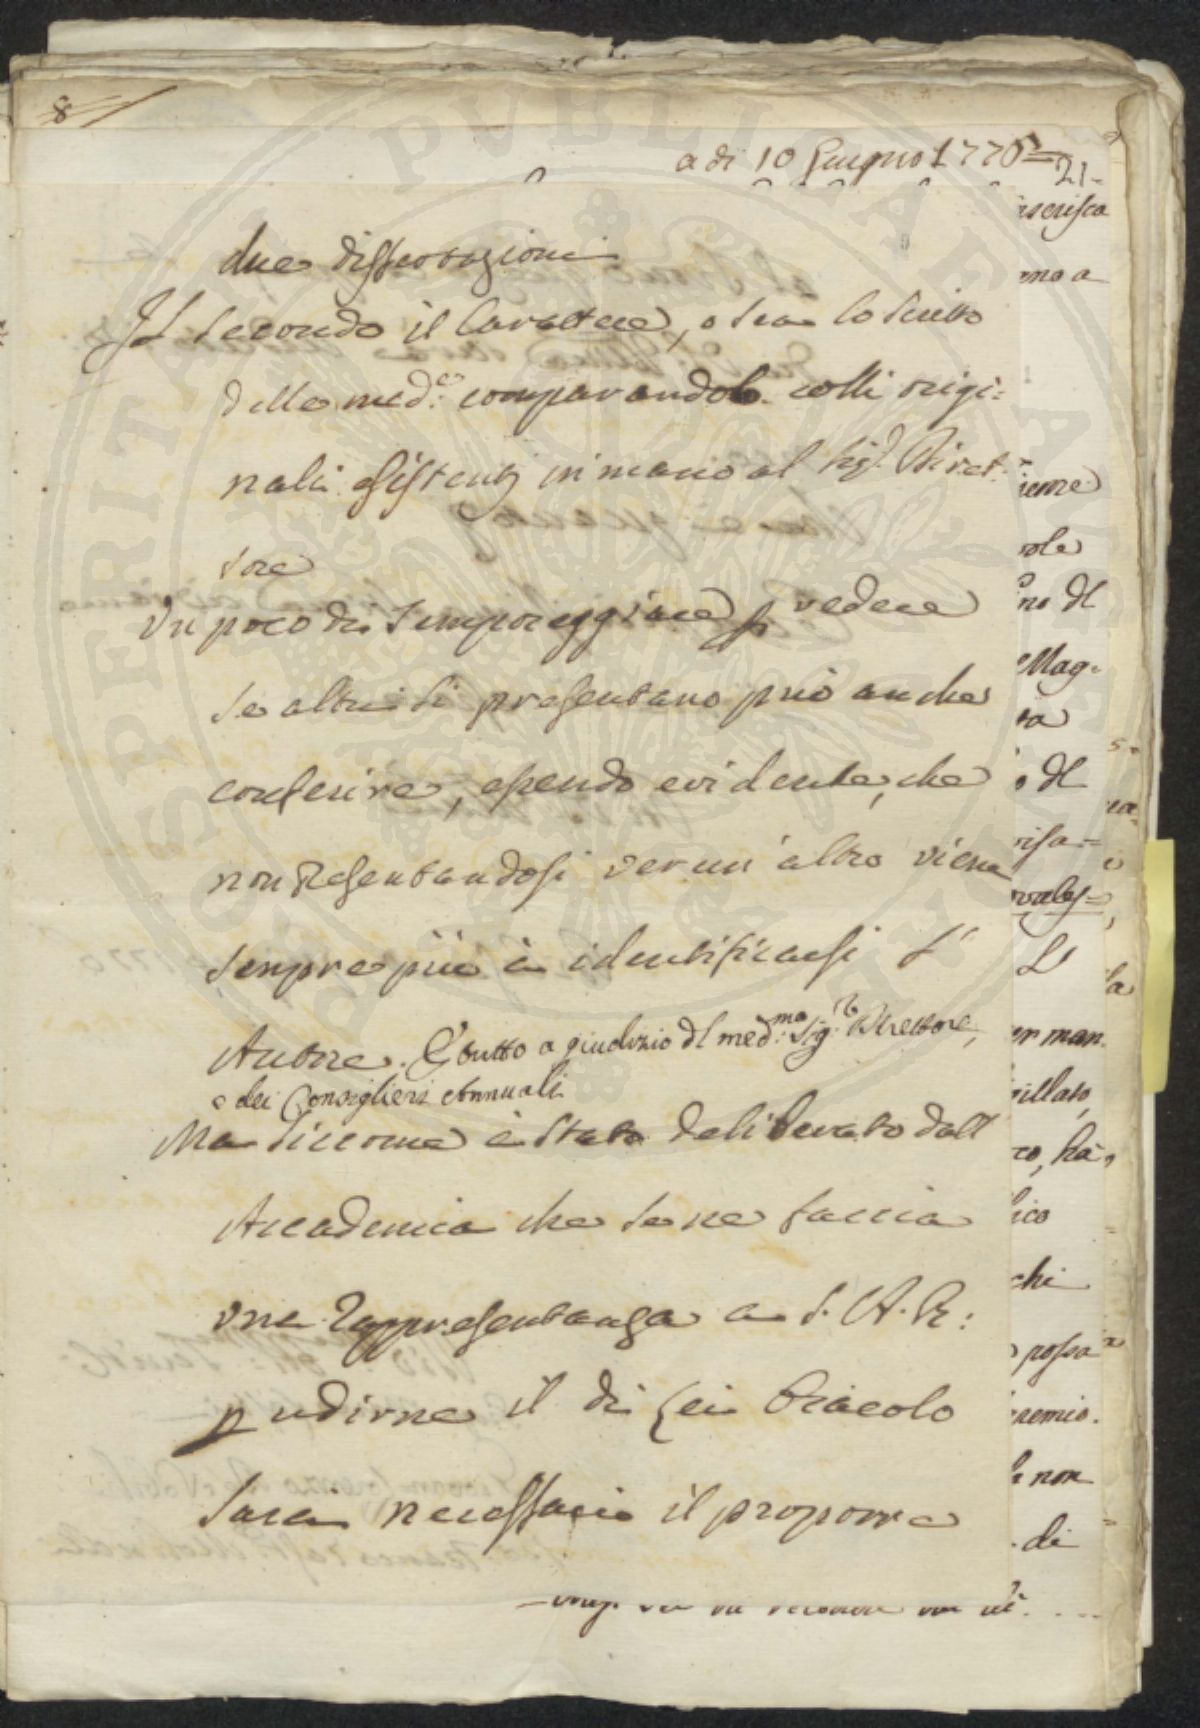 8
a di 10 Giugno 1770
21.
due dissertazioni
Il secondo il Carattere, o sia lo scritto
delle med.e comparandole colli origi:
nali esistenti in mano al Sig.r Diret:
tore
Un poco di temporeggiare p vedere
se altri si presentano può anche
conferire, essendo evidente, che
non presentandosi verun altro viene
sempre più à identificarsi l'
Autore. E tutto a giudizio dl med.mo Sig.r Direttore,
e dei Consiglieri Annuali
Ma siccome è stato deliberato dall
Accademia che se ne faccia
una rappresentanza a S. A. R:
p udirne il di Lei Oracolo
sarà necessario il proporre
inserisca
nno a
ieme
vole
no dl
Mag.
ra
o dl
risa=
L'
er man
sillato,
co, hà
ico
chi
possa
remio.
non
di